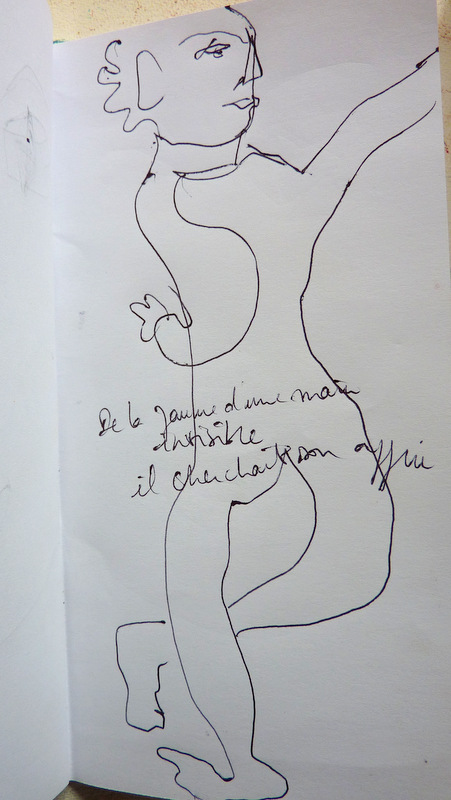 De la paume d'une main
invisible
il cherchait son appui